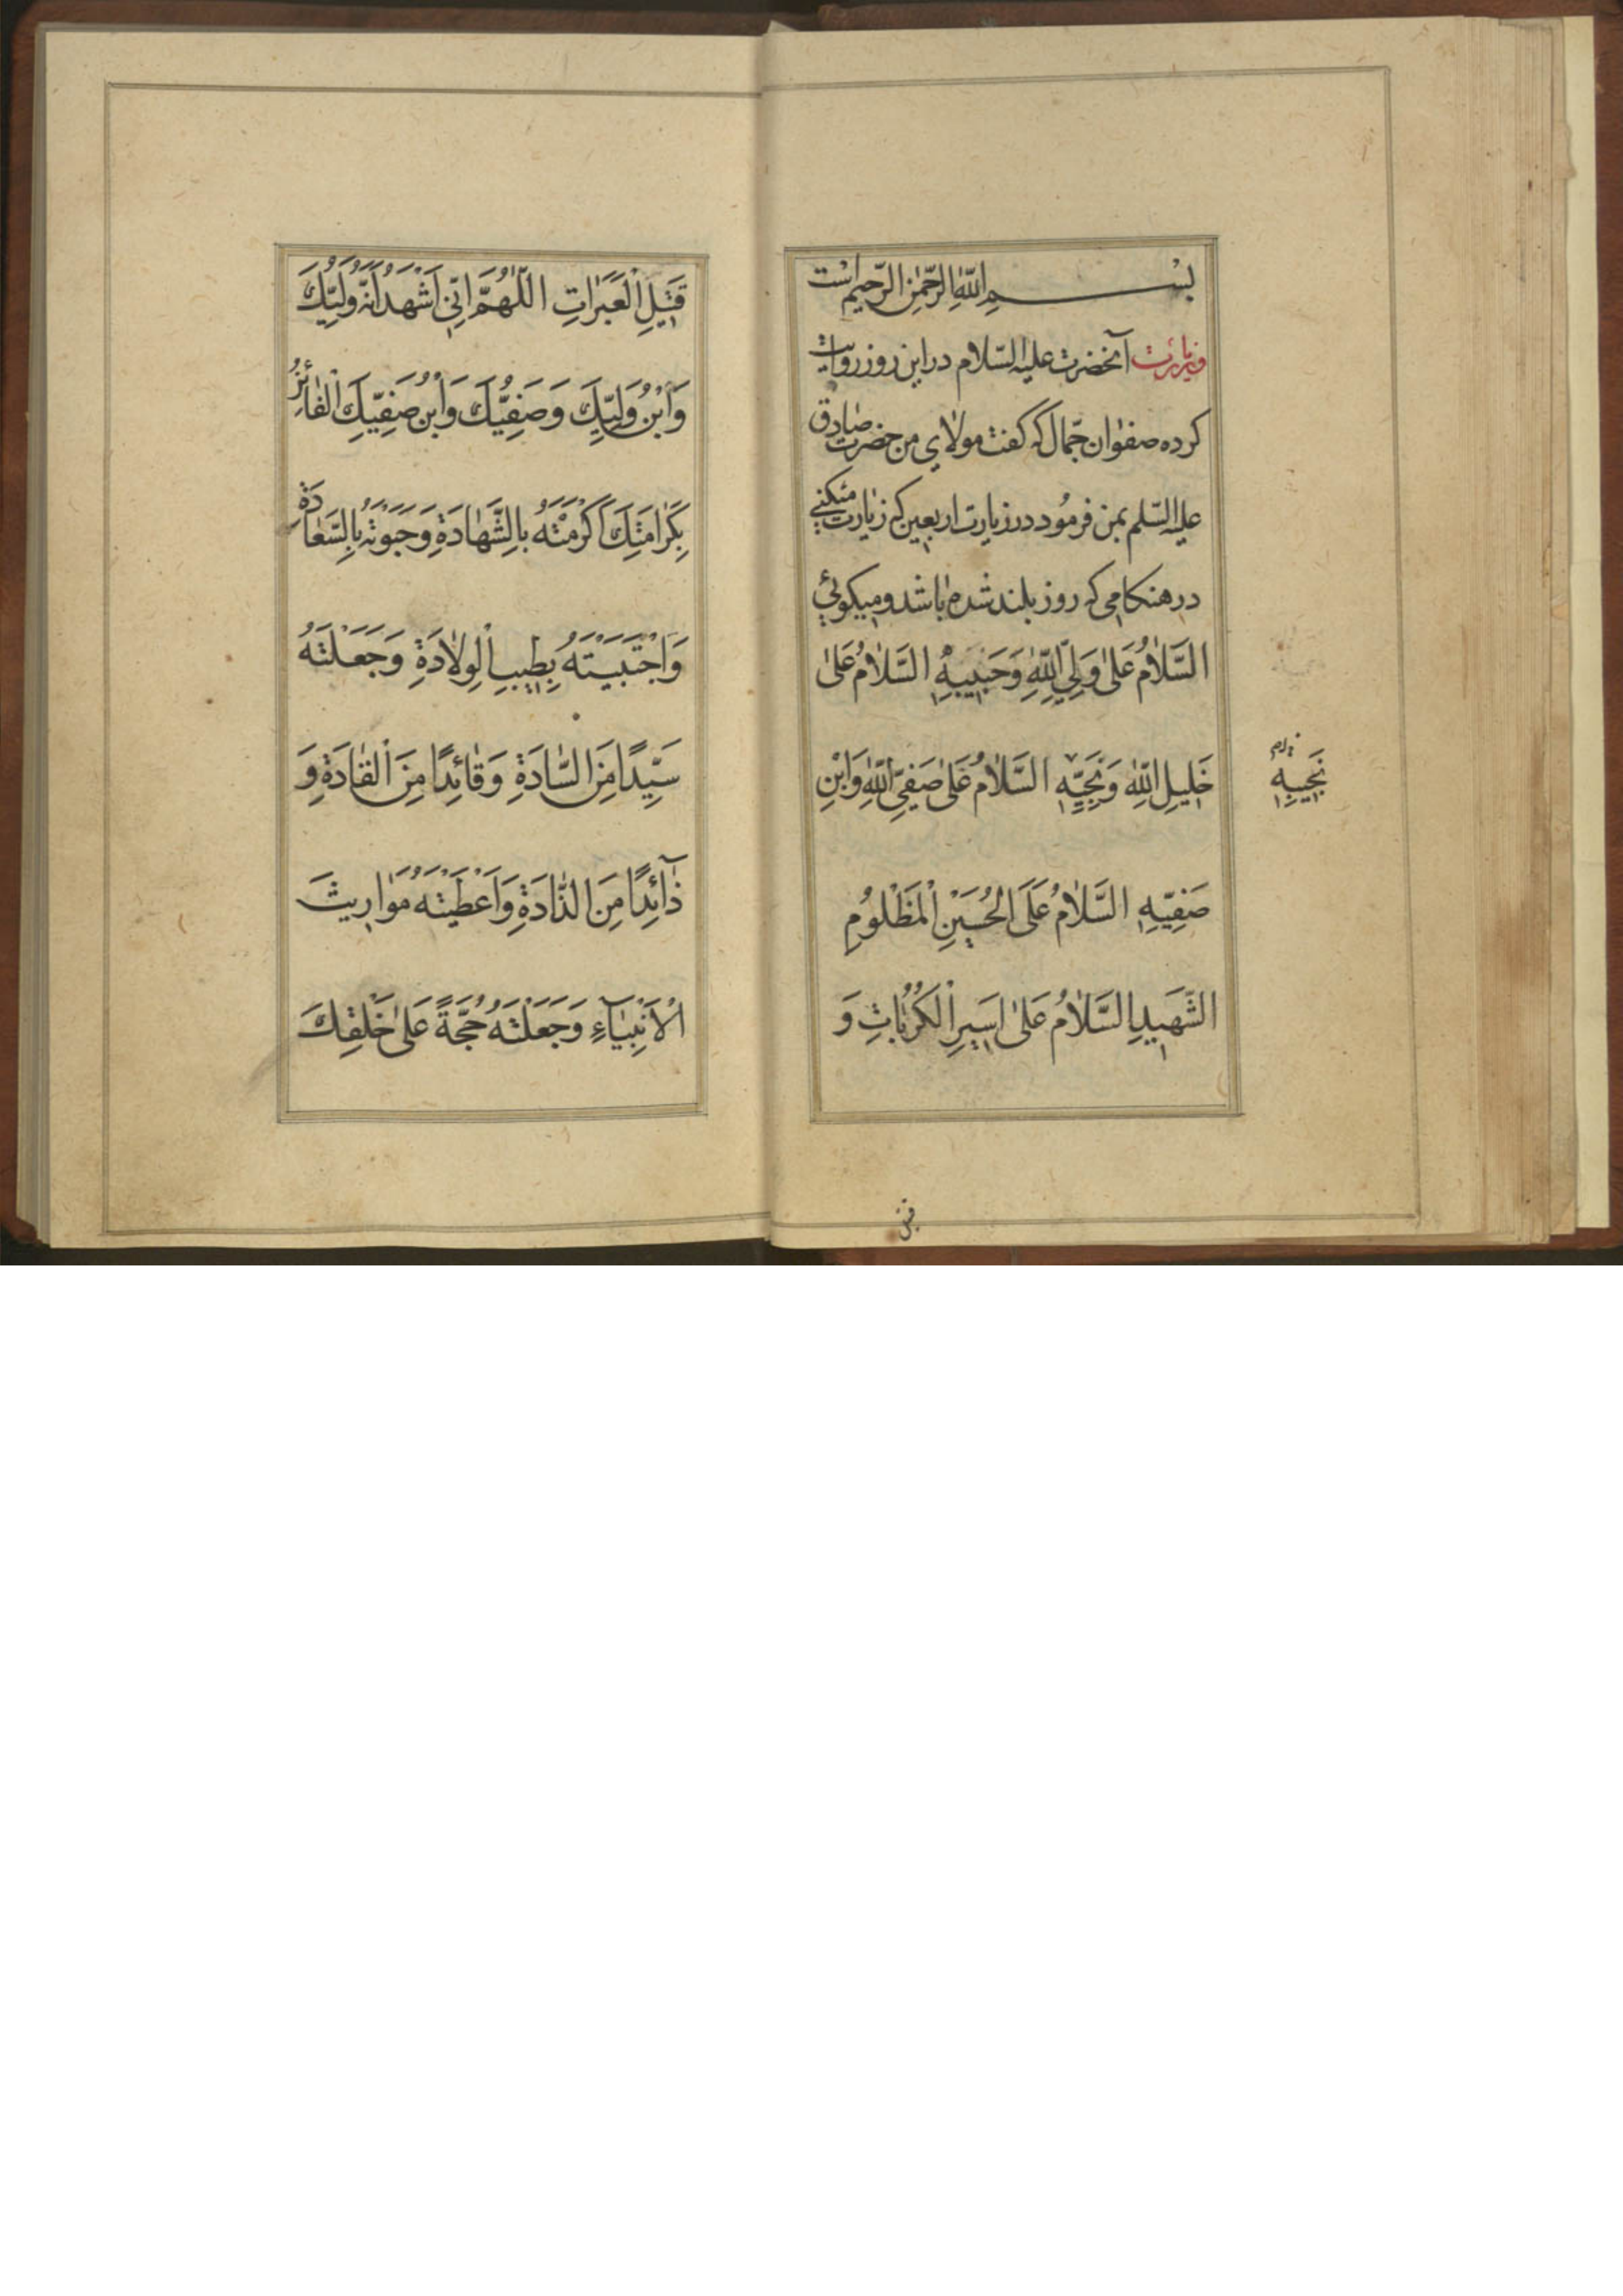 بِسْمِ اللّٰهِ الرَّحْمٰنِ الرَّحیمِ است
وزیارت آنحضرت علیه السّلام در این روز روایت
کرده صفوان جمّال که گفت مولای من حضرت صادق
علیه السّلم بمن فرمُود در زیارت اربعین که زیارت میکنی
در هنکامی که روز بلند شده باشد و میکوئی
السَّلٰامُ عَلٰی وَلِیِّ اللّٰهِ وَحَبیبِهِ السَّلٰامُ عَلٰی
خَلیلِ اللّٰهِ وَنَجِیِّهِ السَّلٰامُ عَلٰی صَفِیِّ اللّٰهِ وَابْنِ
نَجیبِهِ
صَفِیِّهِ السَّلٰامُ عَلَی الْحُسَیْنِ الْمَظْلُومِ
الشَّهیدِ السَّلٰامُ عَلٰی اَسیرِ الْکُرُبٰاتِ وَ
قتیل
قَتیلِ الْعَبَرٰاتِ اَللّٰهُمَّ اِنّی اَشْهَدُ اَنَّهُ وَلِیُّکَ
وَابْنُ وَلِیِّکَ وَصَفِیُّکَ وَابْنُ صَفِیِّکَ الْفٰائِزُ
بِکَرٰامَتِکَ اَکْرَمْتَهُ بِالشَّهٰادَةِ وَحَبَوْتَهُ بِالسَّعٰادَةِ
وَاجْتَبَیْتَهُ بِطیبِ الْوِلٰادَةِ وَجَعَلْتَهُ
سَیِّدًا مِنَ السّٰادَةِ وَقٰائِدًا مِنَ الْقٰادَةِ وَ
ذٰآئِدًا مِنَ الذّٰادَةِ وَاَعْطَیْتَهُ مَوٰاریثَ
الْاَنْبِیٰآءِ وَجَعَلْتَهُ حُجَّةً عَلٰی خَلْقِکَ